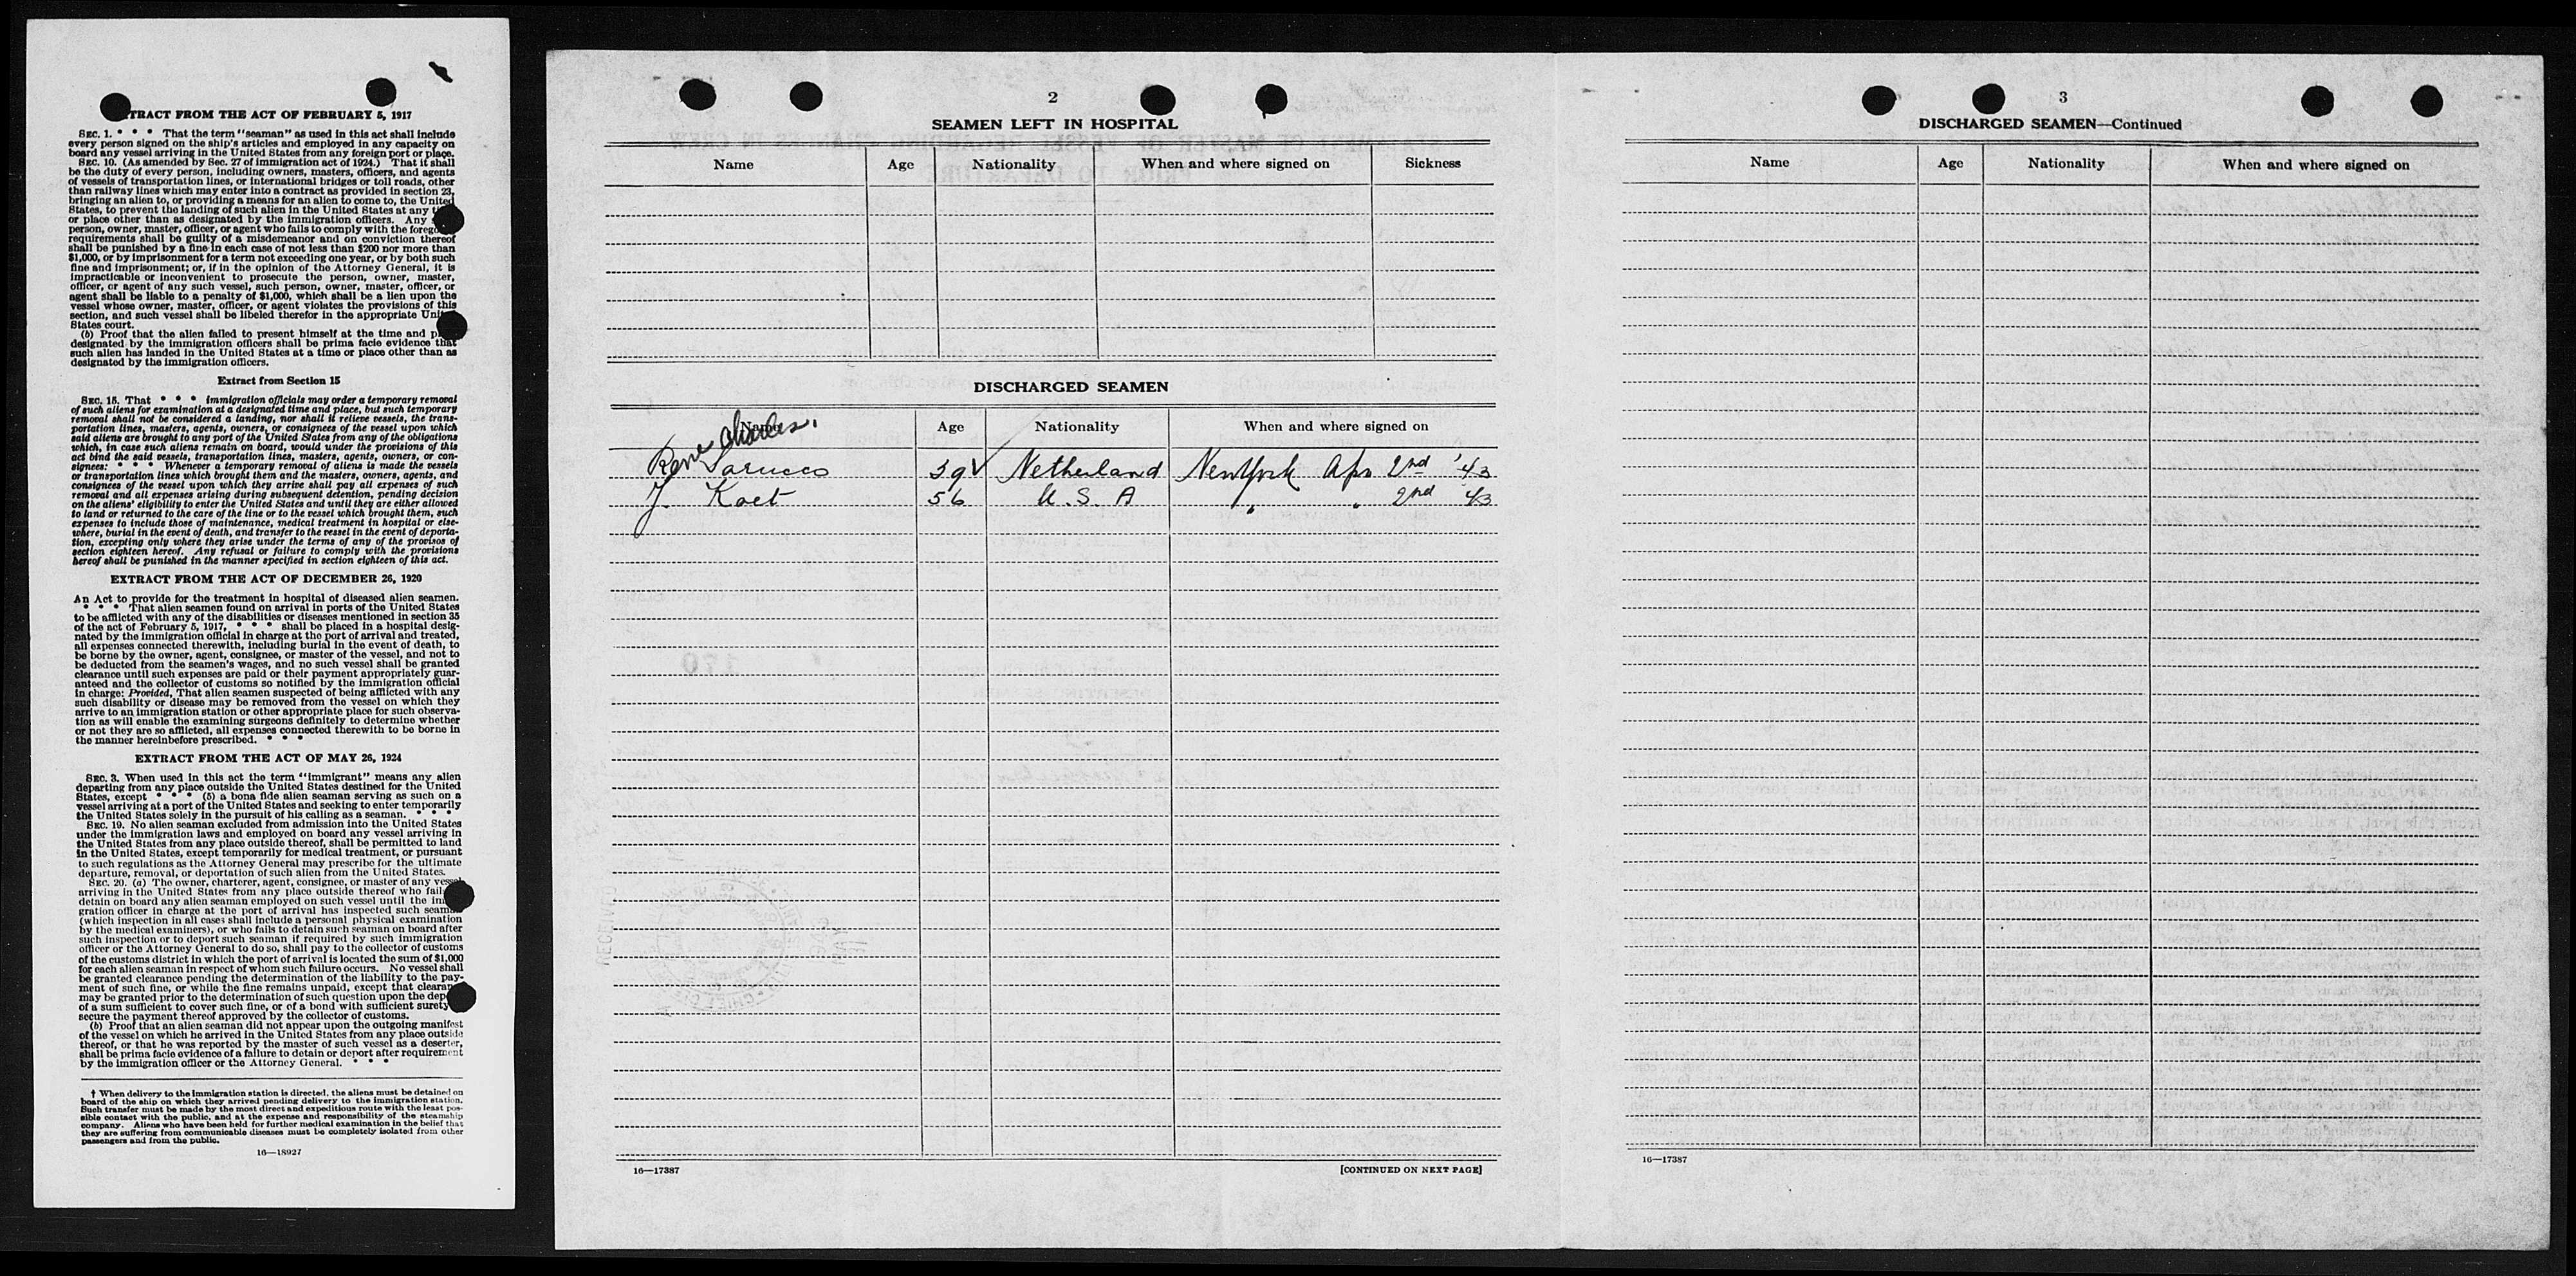 TRACT FROM THE ACT OF FEBRUARY 5, 1917
SEC. 1. * * * That the term "seaman" as used in this act shall include
every person signed on the ship's articles and employed in any capacity on
board any vessel arriving in the United States from any foreign port or place.
SEC. 10. (As amended by Sec. 27 of immigration act of 1924.) That it shall
be the duty of every person, including owners, masters, officers, and agents
of vessels of transportation lines, or international bridges or toll roads, other
than railway lines which may enter into a contract as provided in section 23,
bringing an alien to, or providing a means for an alien to come to, the United
States, to prevent the landing of such alien in the United States at any
or place other than as designated by the immigration officers. Any
person, owner, master, officer, or agent who fails to comply with the forego
requirements shall be guilty of a misdemeanor and on conviction thereof
shall be punished by a fine in each case of not less than $200 nor more than
$1,000, or by imprisonment for a term not exceeding one year, or by both such
fine and imprisonment; or, if in the opinion of the Attorney General, it is
impracticable or inconvenient to prosecute the person, owner, master,
officer, or agent of any such vessel, such person, owner, master, officer, or
agent shall be liable to a penalty of $1,000, which shall be a lien upon the
vessel whose owner, master, officer, or agent violates the provisions of this
section, and such vessel shall be libeled therefor in the appropriate Unit
States court.
(b) Proof that the alien failed to present himself at the time and p
designated by the immigration officers shall be prima facie evidence that
such alien has landed in the United States at a time or place other than as
designated by the immigration officers.
Extract from Section 15
SEC. 15. That * * * immigration officials may order a temporary removal
of such aliens for examination at a designated time and place, but such temporary
removal shall not be considered a landing, nor shall it relieve vessels, the trans-
portation lines, masters, agents, owners, or consignees of the vessel upon which
said aliens are brought to any port of the United States from any of the obligations
which, in case such aliens remain on board, would under the provisions of this
act bind the said vessels, transportation lines, masters, agents, owners, or con-
signees: * * * Whenever a temporary removal of aliens is made the vessels
or transportation lines which brought them and the masters, owners, agents, and
consignees of the vessel upon which they arrive shall pay all expenses of such
removal and all expenses arising during subsequent detention, pending decision
on the aliens' eligibility to enter the United States and until they are either allowed
to land or returned to the care of the line or to the vessel which brought them, such
expenses to include those of maintenance, medical treatment in hospital or else-
where, burial in the event of death, and transfer to the vessel in the event of deporta-
tion, excepting only where they arise under the terms of any of the provisos of
section eighteen hereof. Any refusal or failure to comply with the provisions
hereof shall be punished in the manner specified in section eighteen of this act.
EXTRACT FROM THE ACT OF DECEMBER 26, 1920
An Act to provide for the treatment in hospital of diseased alien seamen.
* * * That alien seamen found on arrival in ports of the United States
to be afflicted with any of the disabilities or diseases mentioned in section 35
of the act of February 5, 1917, * * * shall be placed in a hospital desig-
nated by the immigration official in charge at the port of arrival and treated,
all expenses connected therewith, including burial in the event of death, to
be borne by the owner, agent, consignee, or master of the vessel, and not to
be deducted from the seamen's wages, and no such vessel shall be granted
clearance until such expenses are paid or their payment appropriately guar-
anteed and the collector of customs so notified by the immigration official
in charge: Provided, That alien seamen suspected of being afflicted with any
such disability or disease may be removed from the vessel on which they
arrive to an immigration station or other appropriate place for such observa-
tion as will enable the examining surgeons definitely to determine whether
or not they are so afflicted, all expenses connected therewith to be borne in
the manner hereinbefore prescribed. * * *
EXTRACT FROM THE ACT OF MAY 26, 1924
SEC. 3. When used in this act the term "immigrant" means any alien
departing from any place outside the United States destined for the United
States, except * * * (5) a bona fide alien seaman serving as such on a
vessel arriving at a port of the United States and seeking to enter temporarily
the United States solely in the pursuit of his calling as a seaman. * * *
SEC. 19. No alien seaman excluded from admission into the United States
under the immigration laws and employed on board any vessel arriving in
the United States from any place outside thereof, shall be permitted to land
in the United States, except temporarily for medical treatment, or pursuant
to such regulations as the Attorney General may prescribe for the ultimate
departure, removal, or deportation of such alien from the United States.
SEC. 20. (a) The owner, charterer, agent, consignee, or master of any vessel
arriving in the United States from any place outside thereof who fail
detain on board any alien seaman employed on such vessel until the im
gration officer in charge at the port of arrival has inspected such seam
(which inspection in all cases shall include a personal physical examination
by the medical examiners), or who fails to detain such seaman on board after
such inspection or to deport such seaman if required by such immigration
officer or the Attorney General to do so, shall pay to the collector of customs
of the customs district in which the port of arrival is located the sum of $1,000
for each alien seaman in respect of whom such failure occurs. No vessel shall
be granted clearance pending the determination of the liability to the pay-
ment of such fine, or while the fine remains unpaid, except that clearan
may be granted prior to the determination of such question upon the dep
of a sum sufficient to cover such fine, or of a bond with sufficient surety
secure the payment thereof approved by the collector of customs.
(b) Proof that an alien seaman did not appear upon the outgoing manifest
of the vessel on which he arrived in the United States from any place outside
thereof, or that he was reported by the master of such vessel as a deserter,
shall be prima facie evidence of a failure to detain or deport after requirement
by the immigration officer or the Attorney General. * * *
† When delivery to the immigration station is directed, the aliens must be detained on
board of the ship on which they arrived pending delivery to the immigration station.
Such transfer must be made by the most direct and expeditious route with the least pos-
sible contact with the public, and at the expense and responsibility of the steamship
company. Aliens who have been held for further medical examination in the belief that
they are suffering from communicable diseases must be completely isolated from other
passengers and from the public.
16—18927
2
SEAMEN LEFT IN HOSPITAL
Name Age Nationality When and where signed on Sickness
DISCHARGED SEAMEN
Name Age Nationality When and where signed on
Rene Charles.
Sarucco 39 ✓ Netherland New York Apr 2nd '43
J. Koet 56 U. S. A " " 2nd 43
16—17387
[CONTINUED ON NEXT PAGE]
3
DISCHARGED SEAMEN—Continued
Name Age Nationality When and where signed on
16—17387